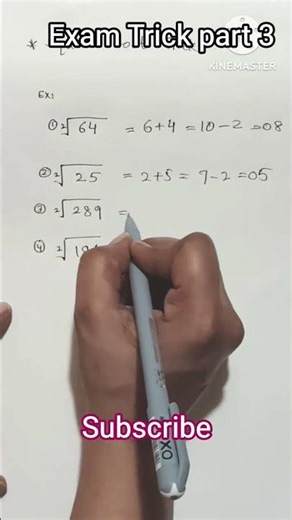 Exam Trick part 3
KINEMASTER
Ex:
① ²√64 = 6+4 = 10-2 = 08
② ²√25 = 2+5 = 7-2 = 05
③ ²√289 =
④ ²√
Subscribe
OXO